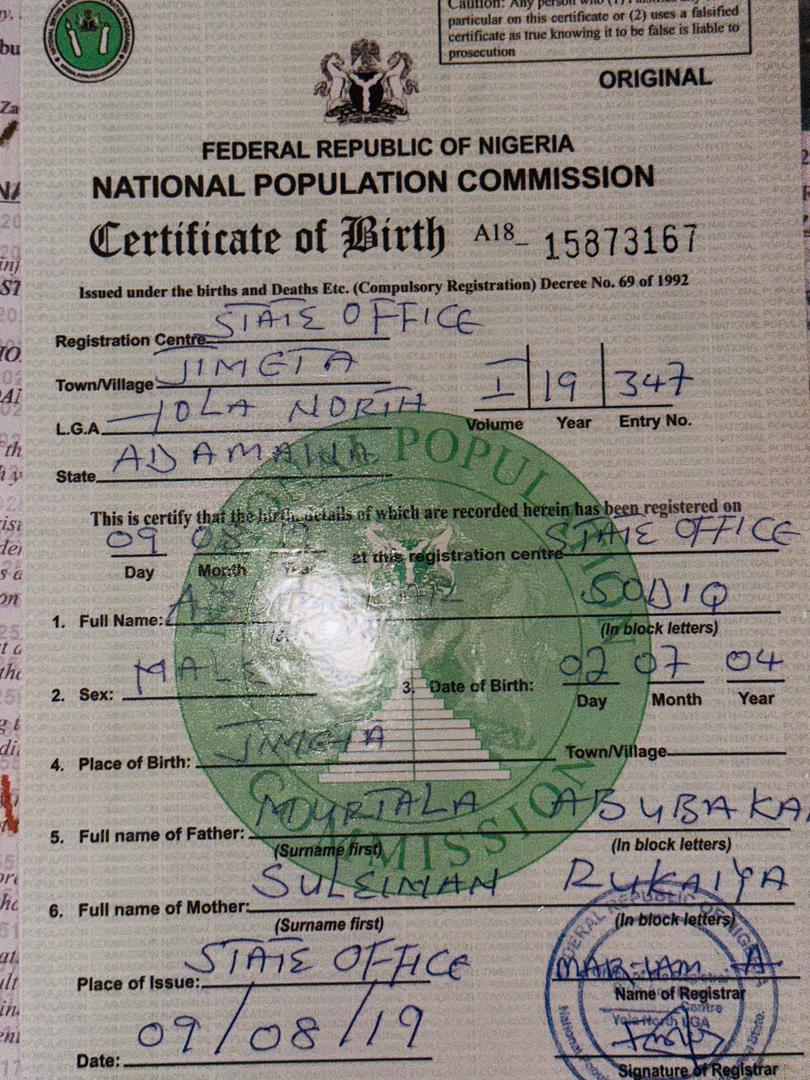 Caution: Any person who (1) falsifies any
particular on this certificate or (2) uses a falsified
certificate as true knowing it to be false is liable to
prosecution
ORIGINAL
FEDERAL REPUBLIC OF NIGERIA
NATIONAL POPULATION COMMISSION
Certificate of Birth A18_ 15873167
Issued under the births and Deaths Etc. (Compulsory Registration) Decree No. 69 of 1992
Registration Centre STATE OFFICE
Town/Village JIMETA
I 19 347
L.G.A YOLA NORTH Volume Year Entry No.
State ADAMAWA
This is certify that the birth, details of which are recorded herein has been registered on
09 08 at this registration centre STATE OFFICE
Day Month Year
1. Full Name: SODIQ
(In block letters)
2. Sex: MALE 3. Date of Birth: 02 07 04
Day Month Year
4. Place of Birth: JIMETA Town/Village
5. Full name of Father: MURTALA ABUBAKA
(Surname first) (In block letters)
6. Full name of Mother: SULEIMAN RUKAIYA
(Surname first) (In block letters)
Place of Issue: STATE OFFICE MARYAM A
Name of Registrar
Date: 09/08/19
Signature of Registrar